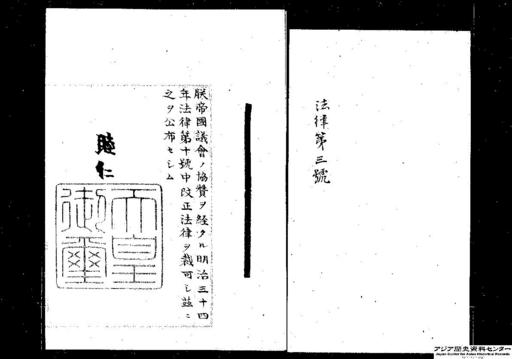 法律第三號
朕帝國議會ノ協贊ヲ經タル明治三十四
年法律第十號中改正法律ヲ裁可シ茲ニ
之ヲ公布セシム
睦仁
天皇
御璽
アジア歴史資料センター
Japan Center for Asian Historical Records